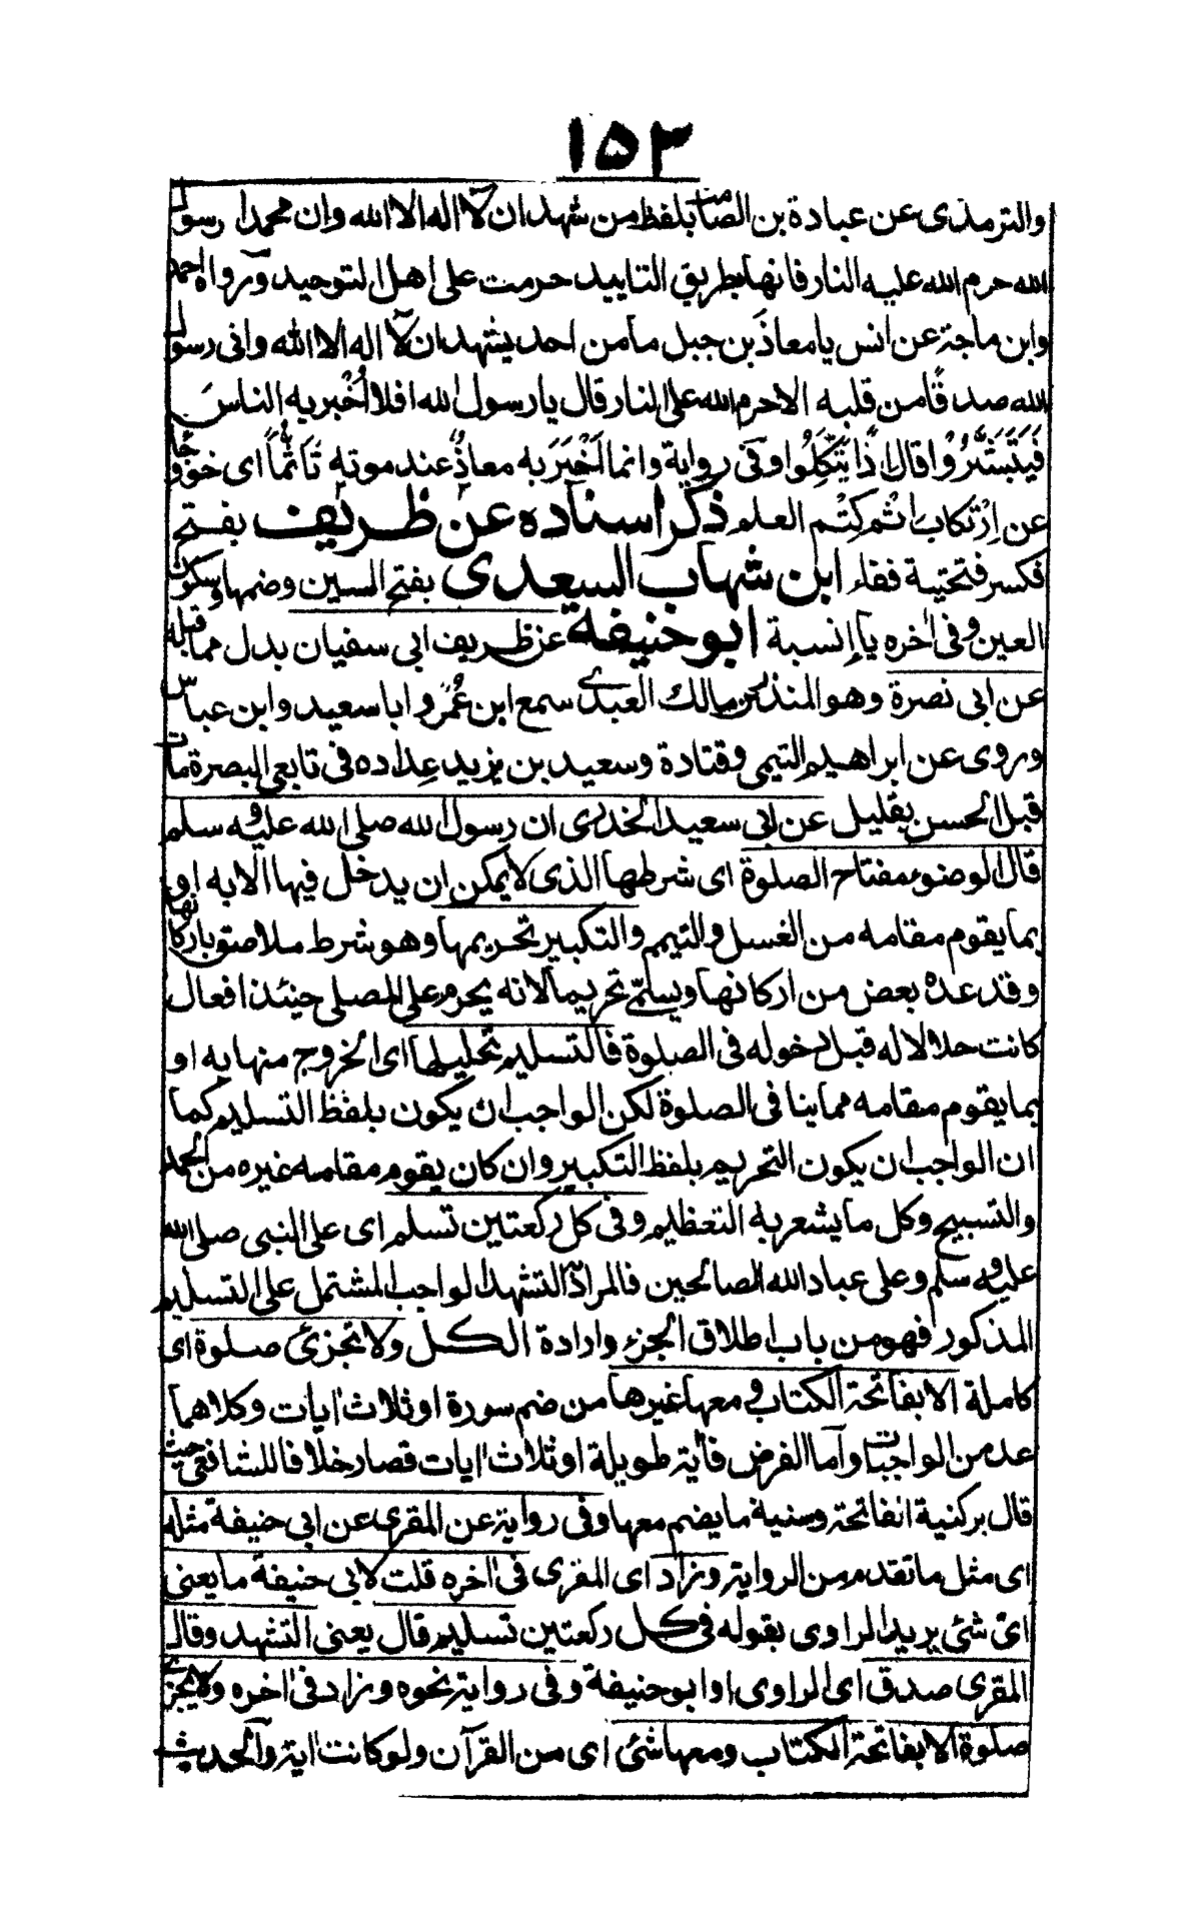 ١٥٣
والترمذى عن عبادة بن الصامت بلفظ من شهد ان لآ اله الا الله وان محمدا رسول
الله حرم الله عليه النار فانها بطريق التاييد حرمت على اهل التوحيد ورواه احمد
وابن ماجة عن انس يا معاذ بن جبل ما من احد يشهد ان لآ اله الا الله وانى رسول
الله صدقًا من قلبه الا حرم الله على النار قال يا رسول الله افلا اُخْبر به الناس
فَيَتَبَشَّرُوْا قال اذًا يَّتَّكِلُوا وفى رواية وانما اَخْبَرَ به معاذٌ عند موته تَاَثُّمًا اى خوفا وخروجا
عن اِرْتكاب اثم كِتْم العلم ذكر اسناده عن ظريف بفتح
فكسر فتحتية ففاء ابن شهاب السعدى بفتح السين وضمها وسكون
العين وفى اٰخره ياء نسبة ابو حنيفة عن ظريف ابى سفيان بدل مما قبله
عن ابى نصرة وهو المنذر بن مالك العبدى سمع ابن عُمَر وابا سعيد وابن عباس
وروى عن ابراهيم التيمى وقتادة وسعيد بن يزيد عِداده فى تابعى البصرة مات
قبل الحسن بقليل عن ابى سعيد الخدرى ان رسول الله صلى الله عليه وسلم
قال الوضوء مفتاح الصلوة اى شرطها الذى لا يمكن ان يدخل فيها الا به او
بما يقوم مقامه من الغسل والتيمم والتكبير تحريمها وهو شرط ملاصق باركانها
وقد عده بعض من اركانها ويسلمّ تحريما لانه يحرم على المصلى حينئذ افعال
كانت حلالا له قبل دخوله فى الصلوة فالتسليم تحليلها اى الخروج منها به او
بما يقوم مقامه مما ينا فى الصلوة لكن الواجب ان يكون بلفظ التسليم كما
ان الواجب ان يكون التحريم بلفظ التكبير وان كان يقوم مقامه غيره من الحمد
والتسبيح وكل ما يشعر به التعظيم وفى كل ركعتين تسلم اى على النبى صلى الله
عليه وسلم وعلى عباد الله الصالحين فالمراد التشهد الواجب المشتمل على التسليم
المذكور فهو من باب اطلاق الجزء وارادة الكل ولا تجزئ صلوة اى
كاملة الا بفاتحة الكتاب ومعها غيرها من ضم سورة او ثلاث اٰيات وكلاهما
عد من الواجبات وآما الفرض فاٰية طويلة او ثلاث اٰيات قصار خلافا للشافعى حيث
قال بركنية الفاتحة وسنية ما يضم معها وفى رواية عن المقرى عن ابى حنيفة مثله
اى مثل ما تقدم من الرواية وزاد اى المقرى فى اٰخره قلت لابى حنيفة ما يعنى
اىّ شئ يريد الراوى بقوله فى كل ركعتين تسليم قال يعنى التشهد وقال
المقرى صدق اى الراوى او ابو حنيفة وفى رواية نحوه وزاد فى اٰخره ولا يجزئ
صلوة الا بفاتحة الكتاب ومعها شئ اى من القرآن ولو كانت اٰية والحديث